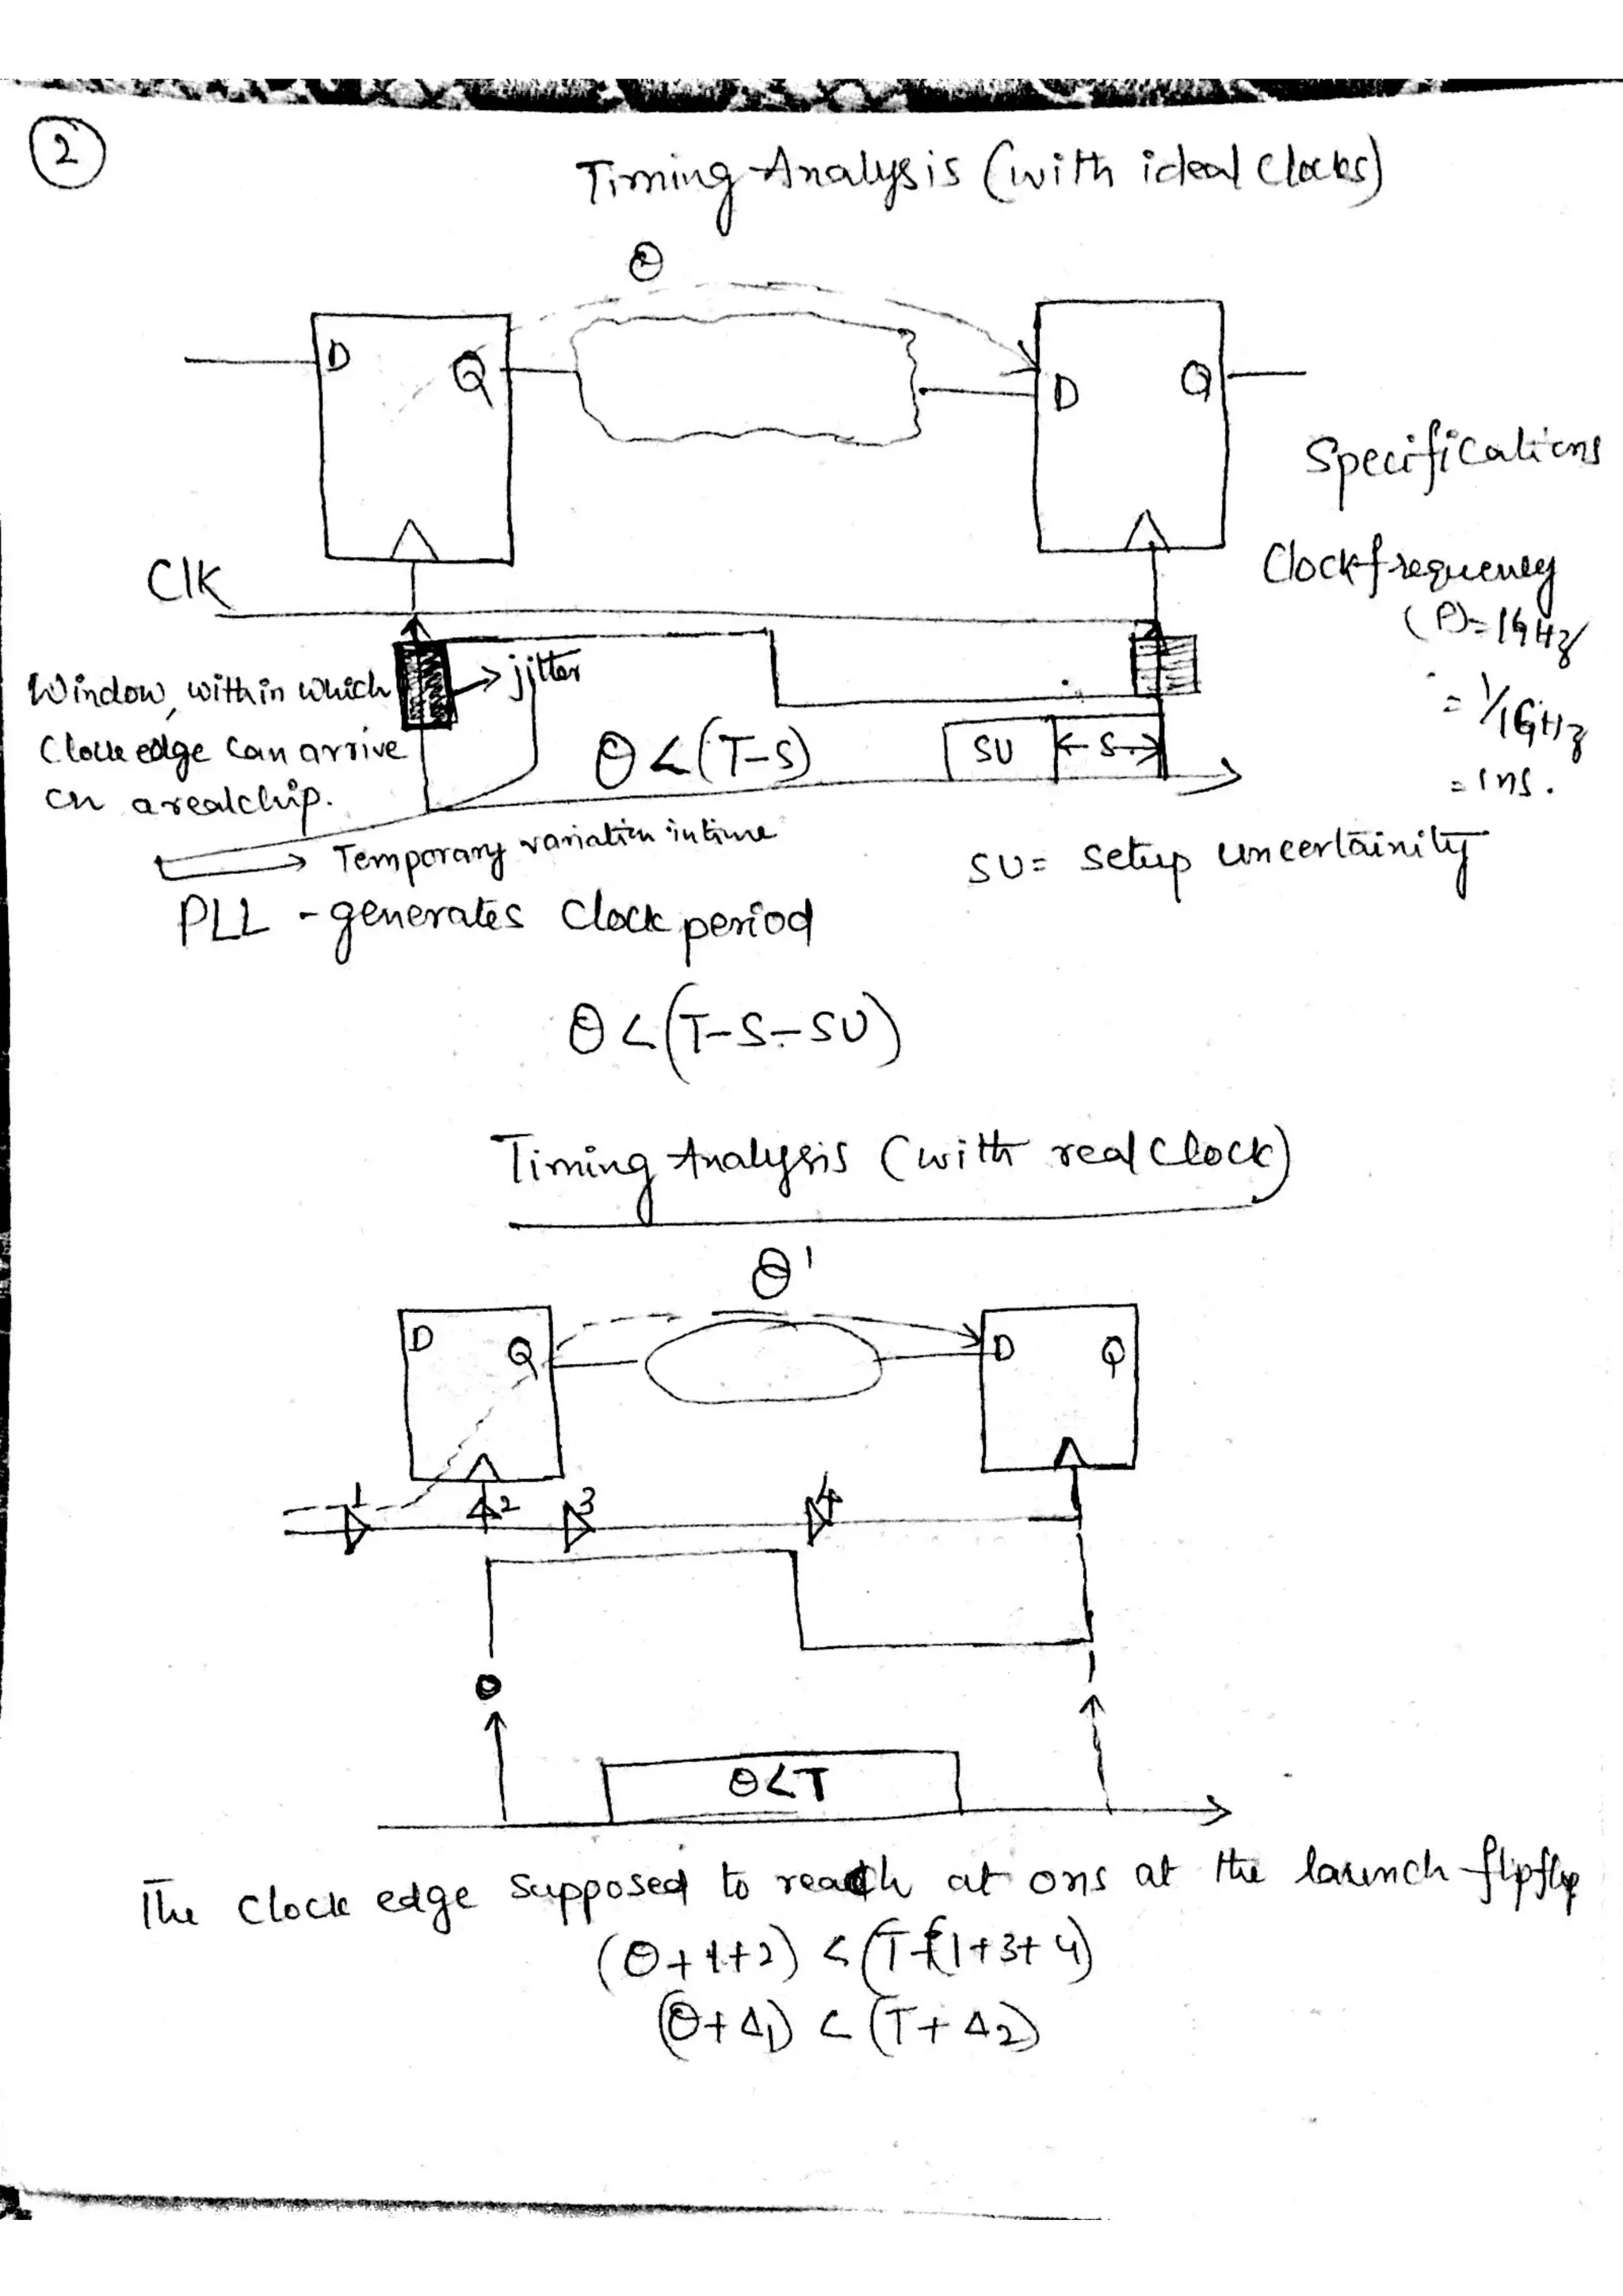 2
Timing Analysis (with ideal clocks)
Θ
D
Q
D
Q
Specifications
Clk
Clock frequency
(P) = 1GHz
= 1/1GHz
= 1ns.
jitter
Window, within which
Clock edge can arrive
on a real chip.
Θ < (T-S)
SU
S
Temporary variation in time
SU = Setup uncertainity
PLL - generates Clock period
Θ < (T-S-SU)
Timing Analysis (with real Clock)
Θ'
D
Q
D
Q
1
2
3
4
0
Θ<T
The Clock edge Supposed to reach at 0ns at the launch flipflop
(Θ+1+2) < (T+(1+3+4)
(Θ+Δ1) < (T+Δ2)